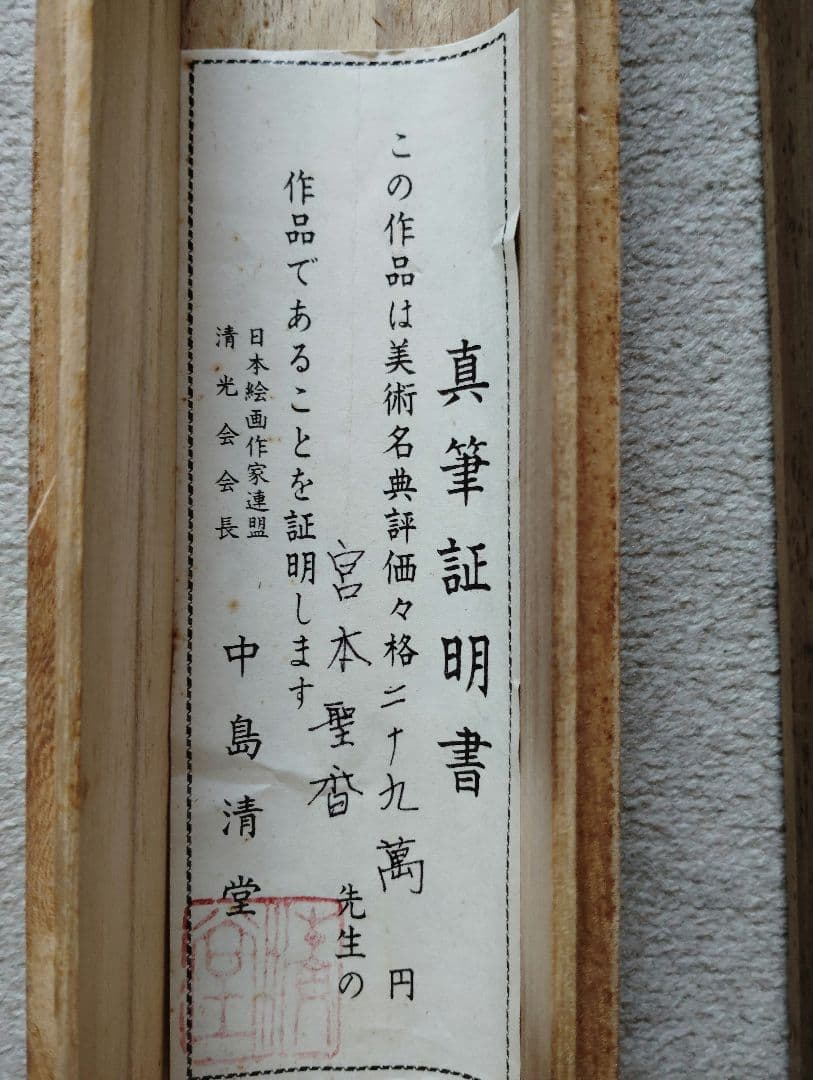 真筆証明書
この作品は美術名典評価々格二十九萬円
宮本聖香先生の
作品であることを証明します
日本絵画作家連盟
清光会会長
中島清堂
清堂